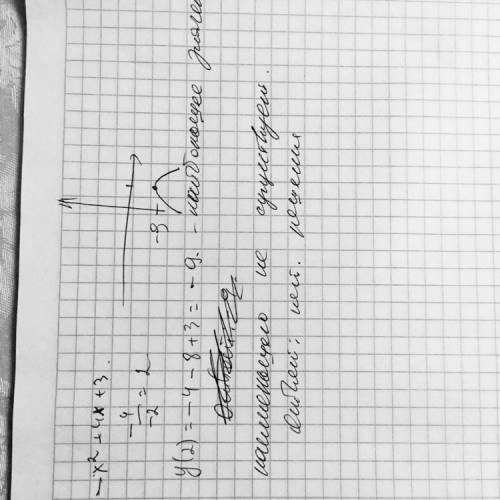 -x² + 4x + 3.
-4/-2 = 2
-9
y(2) = -4 - 8 + 3 = -9. - наибольшее
наименьшего не существует.
нет. решения